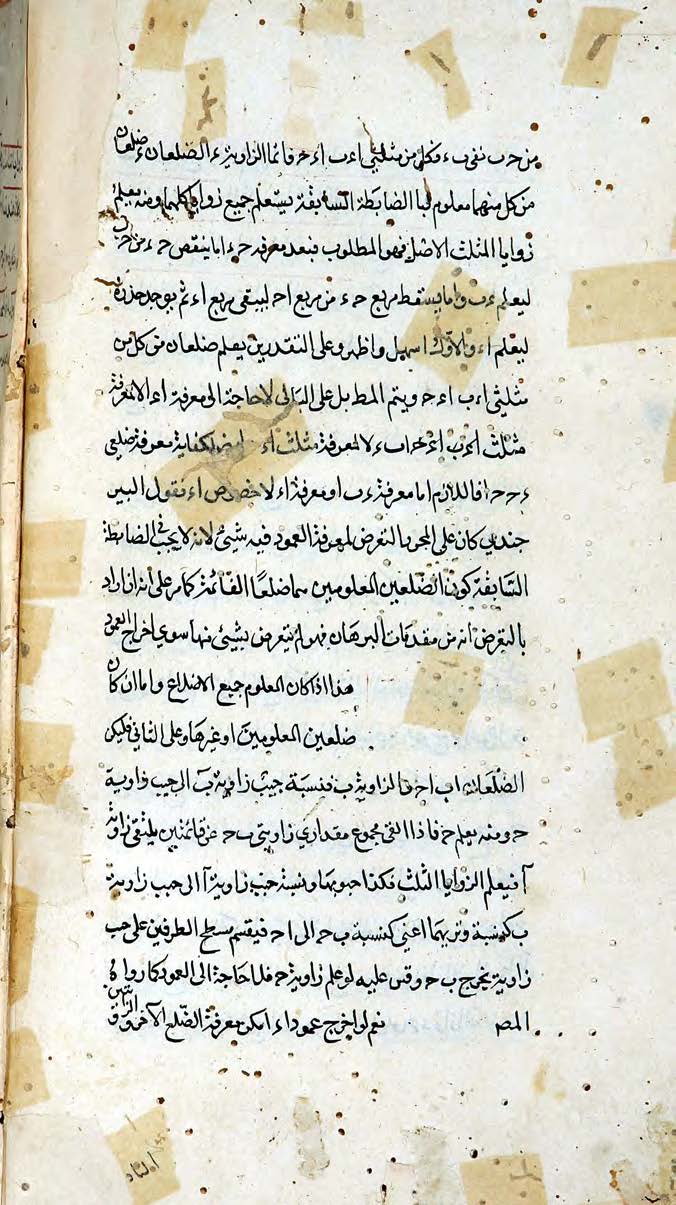 من حـ ب نفى ب ء فكل من مثلثى ا ء ب ا ء حـ قائما الزاوية ء الضلعان ء ضلعان
من كل منهما معلوم فبا الضابطة السابقة يستعلم جميع زواياكلهما ومنه يعلم
زوايا المثلث الاصل فهو المطلوب فبعد معرفة حـ ء اما ينقص حـ ء من حـ ب
ليعلم ء ب واما يسقط مربع حـ ء من مربع ا حـ ليبقى مربع ا ء ثم يوجد جذره
ليعلم ا ء والاول اسهل واظهر وعلى التقدرين يعلم ضلعان من كل من
مثلثى ا ء ب ا ء حـ ويتم المط بل على التالى لا حاجة الى معرفة ا ء الا لمعرفة
مثلث ا ء ب لا لمعرفة مثلث ا ء لكفاية معرفة ضلعى
ء حـ حـ ا فاللازم اما معرفة ء ب او معرفة ا ء لا خصوص ا ء فقول البير
جندى كان على المجرى بالتعرض لمعرفة العمود فيه شيئ لانه لا يجب فى الضابطة
السابقة كون الضلعين المعلومين هما ضلعا القائمة كما مر على انه ان اراد
بالتعرض انه من مقدمات البرهان فهو لم يتعرض بشيئ منها سوى اخراج العمود
هذا اذا كان المعلوم جميع الاضلاع واما ان كان
ضلعين المعلومين او غيرها وعلى الثانى فليكن
الضلعان ا ب ا حـ والزاوية ب فنسبة جيب زاوية ب الى جيب زاوية
حـ ومنه يعلم حـ فاذا القى مجموع مقدارى زاويتى ب حـ عن قائمتين يبقى زاوية
ا فيعلم الزوايا الثلث فكذا جيوبها ونسبة جيب زاوية ا الى جيب زاوية
ب كنسبة وتريهما اعنى كنسبة ب حـ الى ا حـ فيقسم مسطح الطرفين على جيب
زاوية يخرج ب حـ وقس عليه لو علم زاوية حـ فلا حاجة الى العمود كما رواه
المص نعم لو اخرج عمود ا ء امكن معرفة الضلع الآخر والزاويتين